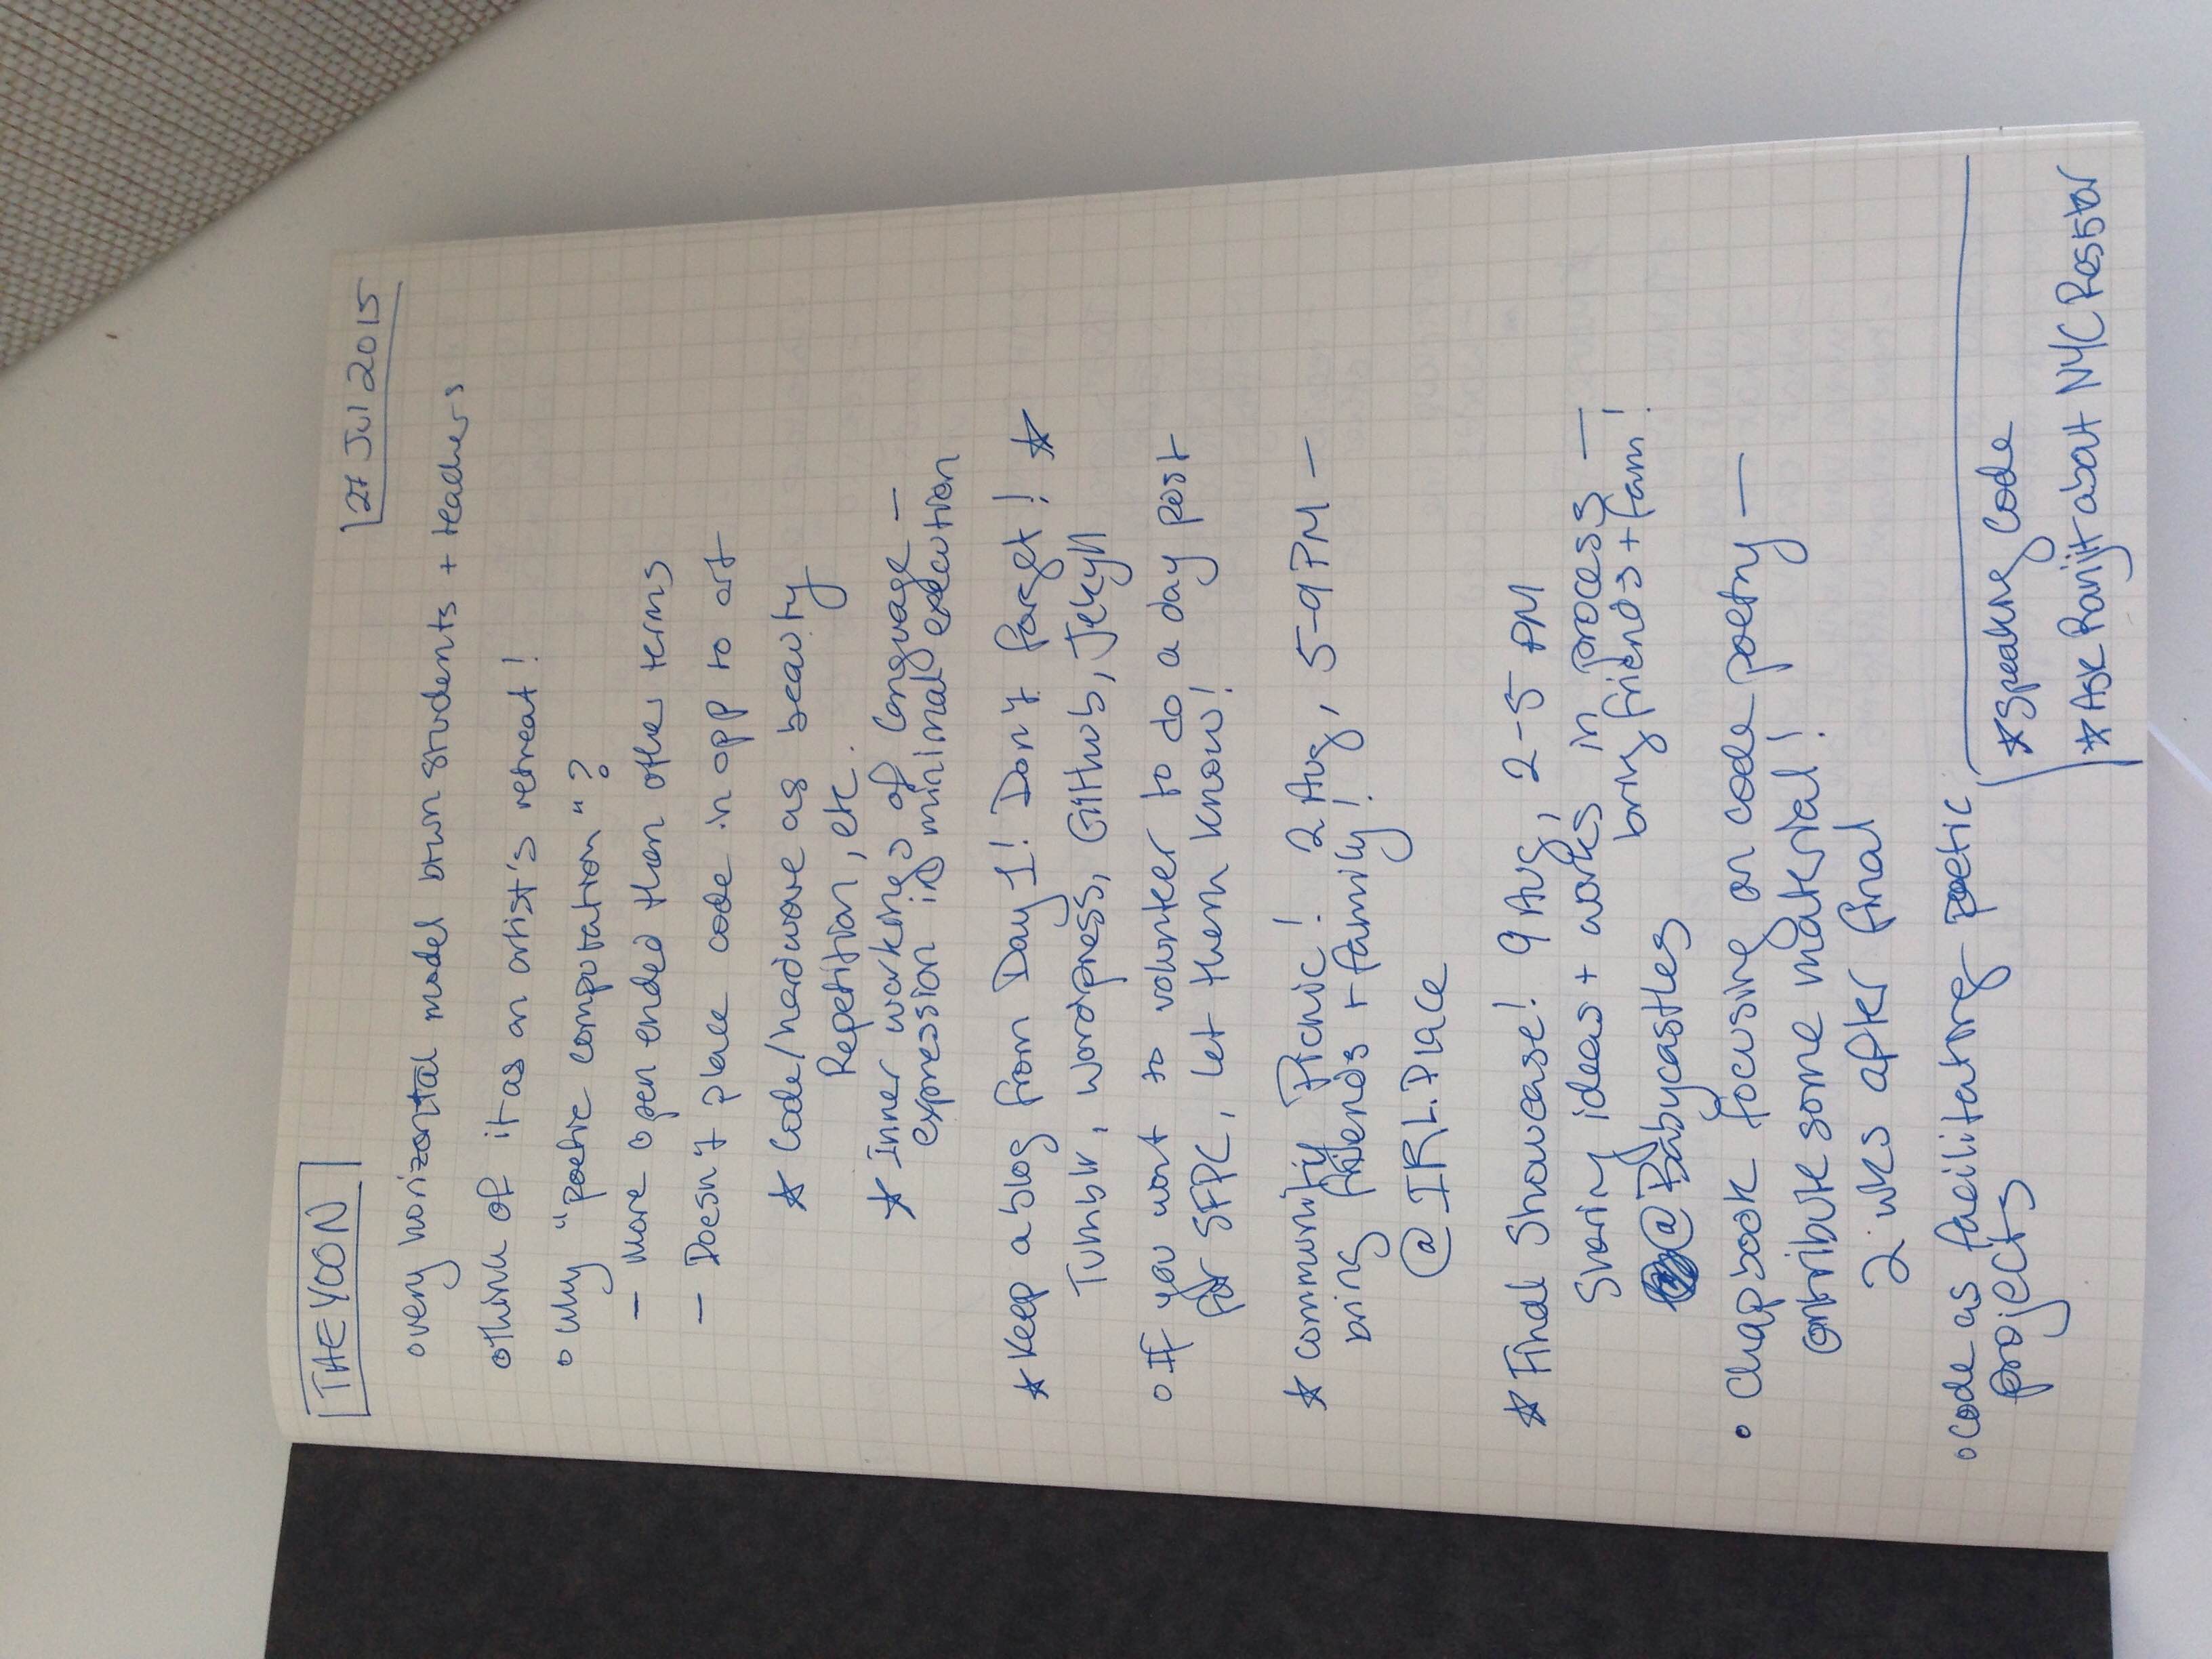 THEYOON
27 Jul 2015
o very horizontal model btwn students + teachers
o think of it as an artist's retreat!
o why "poetic computation"?
— More open ended than other terms
— Doesn't place code in opp to art
☆ Code/hardware as beauty
Repetition, etc.
☆ Inner workings of language —
expression in minimal execution
☆ Keep a blog from Day 1! Don't forget! ☆
Tumblr, Wordpress, GitHub, Jekyll
o If you want to volunteer to do a day post
for SFPC, let them know!
☆ Community Picnic! 2 Aug, 5-9 PM —
bring friends + family!
@ IRL.Place
☆ Final Showcase! 9 Aug, 2-5 PM
Sharing ideas + works in process —
bring friends + fam!
@Babycastles
• Chapbook focusing on code poetry —
contribute some material!
2 wks after final
o code as facilitating poetic
projects
☆ Speaking Code
☆ Ask Ranjit about NYC Resistor